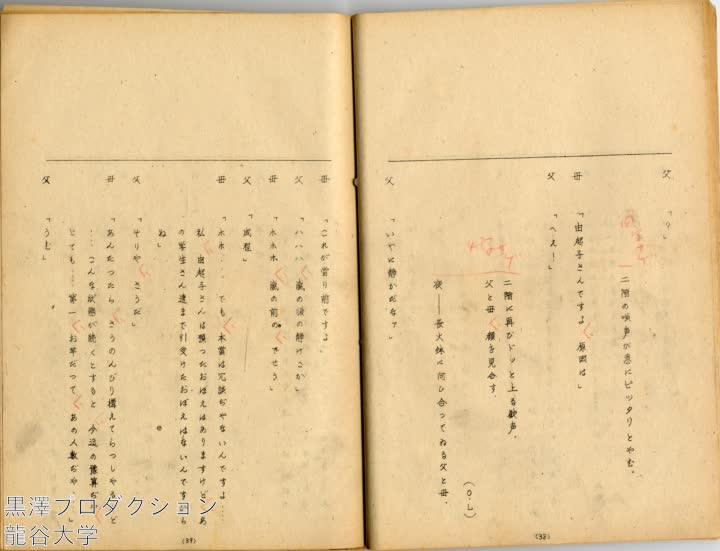 父 「？」
二階の唄声が急にピッタリとやむ。
母 「由起子さんですよ、原因は」
父 「へえ！」
二階に再びドッと上る歓声。
父と母、顔を見合す。
(O.L)
夜——長火鉢に向ひ合つてゐる父と母。
父 「いやに静かだなァ」
(38)
母 「これが当り前ですよ」
父 「ハハハ、嵐の後の静けさか」
母 「ホホホ、嵐の前の、でせう」
父 「成程」
母 「ホホ…でも、本当は冗談ぢやないんですよ…
私、由起子さんは預つたおぼえはありますけど、あ
の学生さん達まで引受けたおぼえはないんですから
ね」
父 「そりや、さうだ」
母 「あんたつたら、さうのんびり構えてらつしやるけど
…こんな状態が続くとすると、今迄の予算ぢや
とても…第一、お茶だつて、あの人数ぢや…」
父 「うむ」
(39)
黒澤プロダクション
龍谷大学